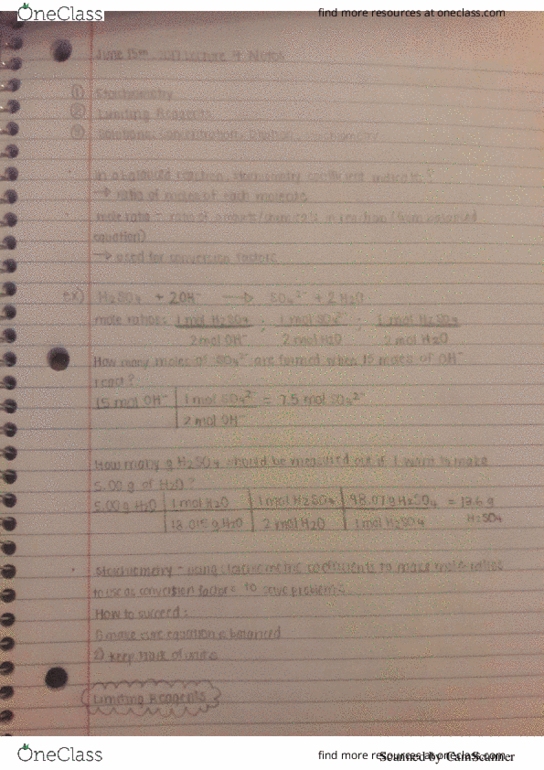 OneClass
find more resources at oneclass.com
June 15th Lecture 7 Notes
① Stoichiometry
② Limiting Reagents
③ Solutions, Concentration, Dilution, Stoichiometry
· in a balanced reaction, stoichiometry coefficient indicate?
→ ratio of moles of each molecule
· mole ratio - ratio of amounts/chemicals in reaction (from balanced
equation)
→ used for conversion factors
ex) H₂SO₄ + 2OH⁻ → SO₄²⁻ + 2H₂O
mole ratios: 1 mol H₂SO₄ ; 1 mol SO₄²⁻ ; 1 mol H₂SO₄
2 mol OH⁻ 2 mol H₂O 2 mol H₂O
How many moles of SO₄²⁻ are formed when 15 moles of OH⁻
react?
15 mol OH⁻ | 1 mol SO₄²⁻ = 7.5 mol SO₄²⁻
2 mol OH⁻
How many g H₂SO₄ should be measured out if I want to make
5.00 g of H₂O?
5.00 g H₂O | 1 mol H₂O | 1 mol H₂SO₄ | 98.07 g H₂SO₄ = 13.6 g
18.015 g H₂O | 2 mol H₂O | 1 mol H₂SO₄ H₂SO₄
· Stoichiometry - using stoichiometric coefficients to make mole ratios
to use as conversion factors to solve problems
How to succeed:
1) make sure equation is balanced
2) keep track of units
Limiting Reagents
OneClass
find more resources at oneclass.com
Scanned by CamScanner